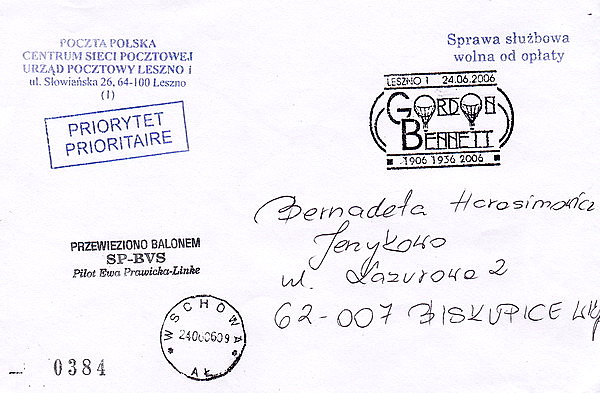 POCZTA POLSKA
CENTRUM SIECI POCZTOWEJ
URZĄD POCZTOWY LESZNO 1
ul. Słowiańska 26, 64-100 Leszno
(1)
Sprawa służbowa
wolna od opłaty
PRIORYTET
PRIORITAIRE
LESZNO 1 24.06.2006
GORDON
BENNETT
1906 1936 2006
Bernadeta Harasimowicz
Jerzykowo
ul. Lazurowa 2
62-007 BISKUPICE
PRZEWIEZIONO BALONEM
SP-BVS
Pilot Ewa Prawicka-Linke
WSCHOWA
24060609
* AŁ *
0384